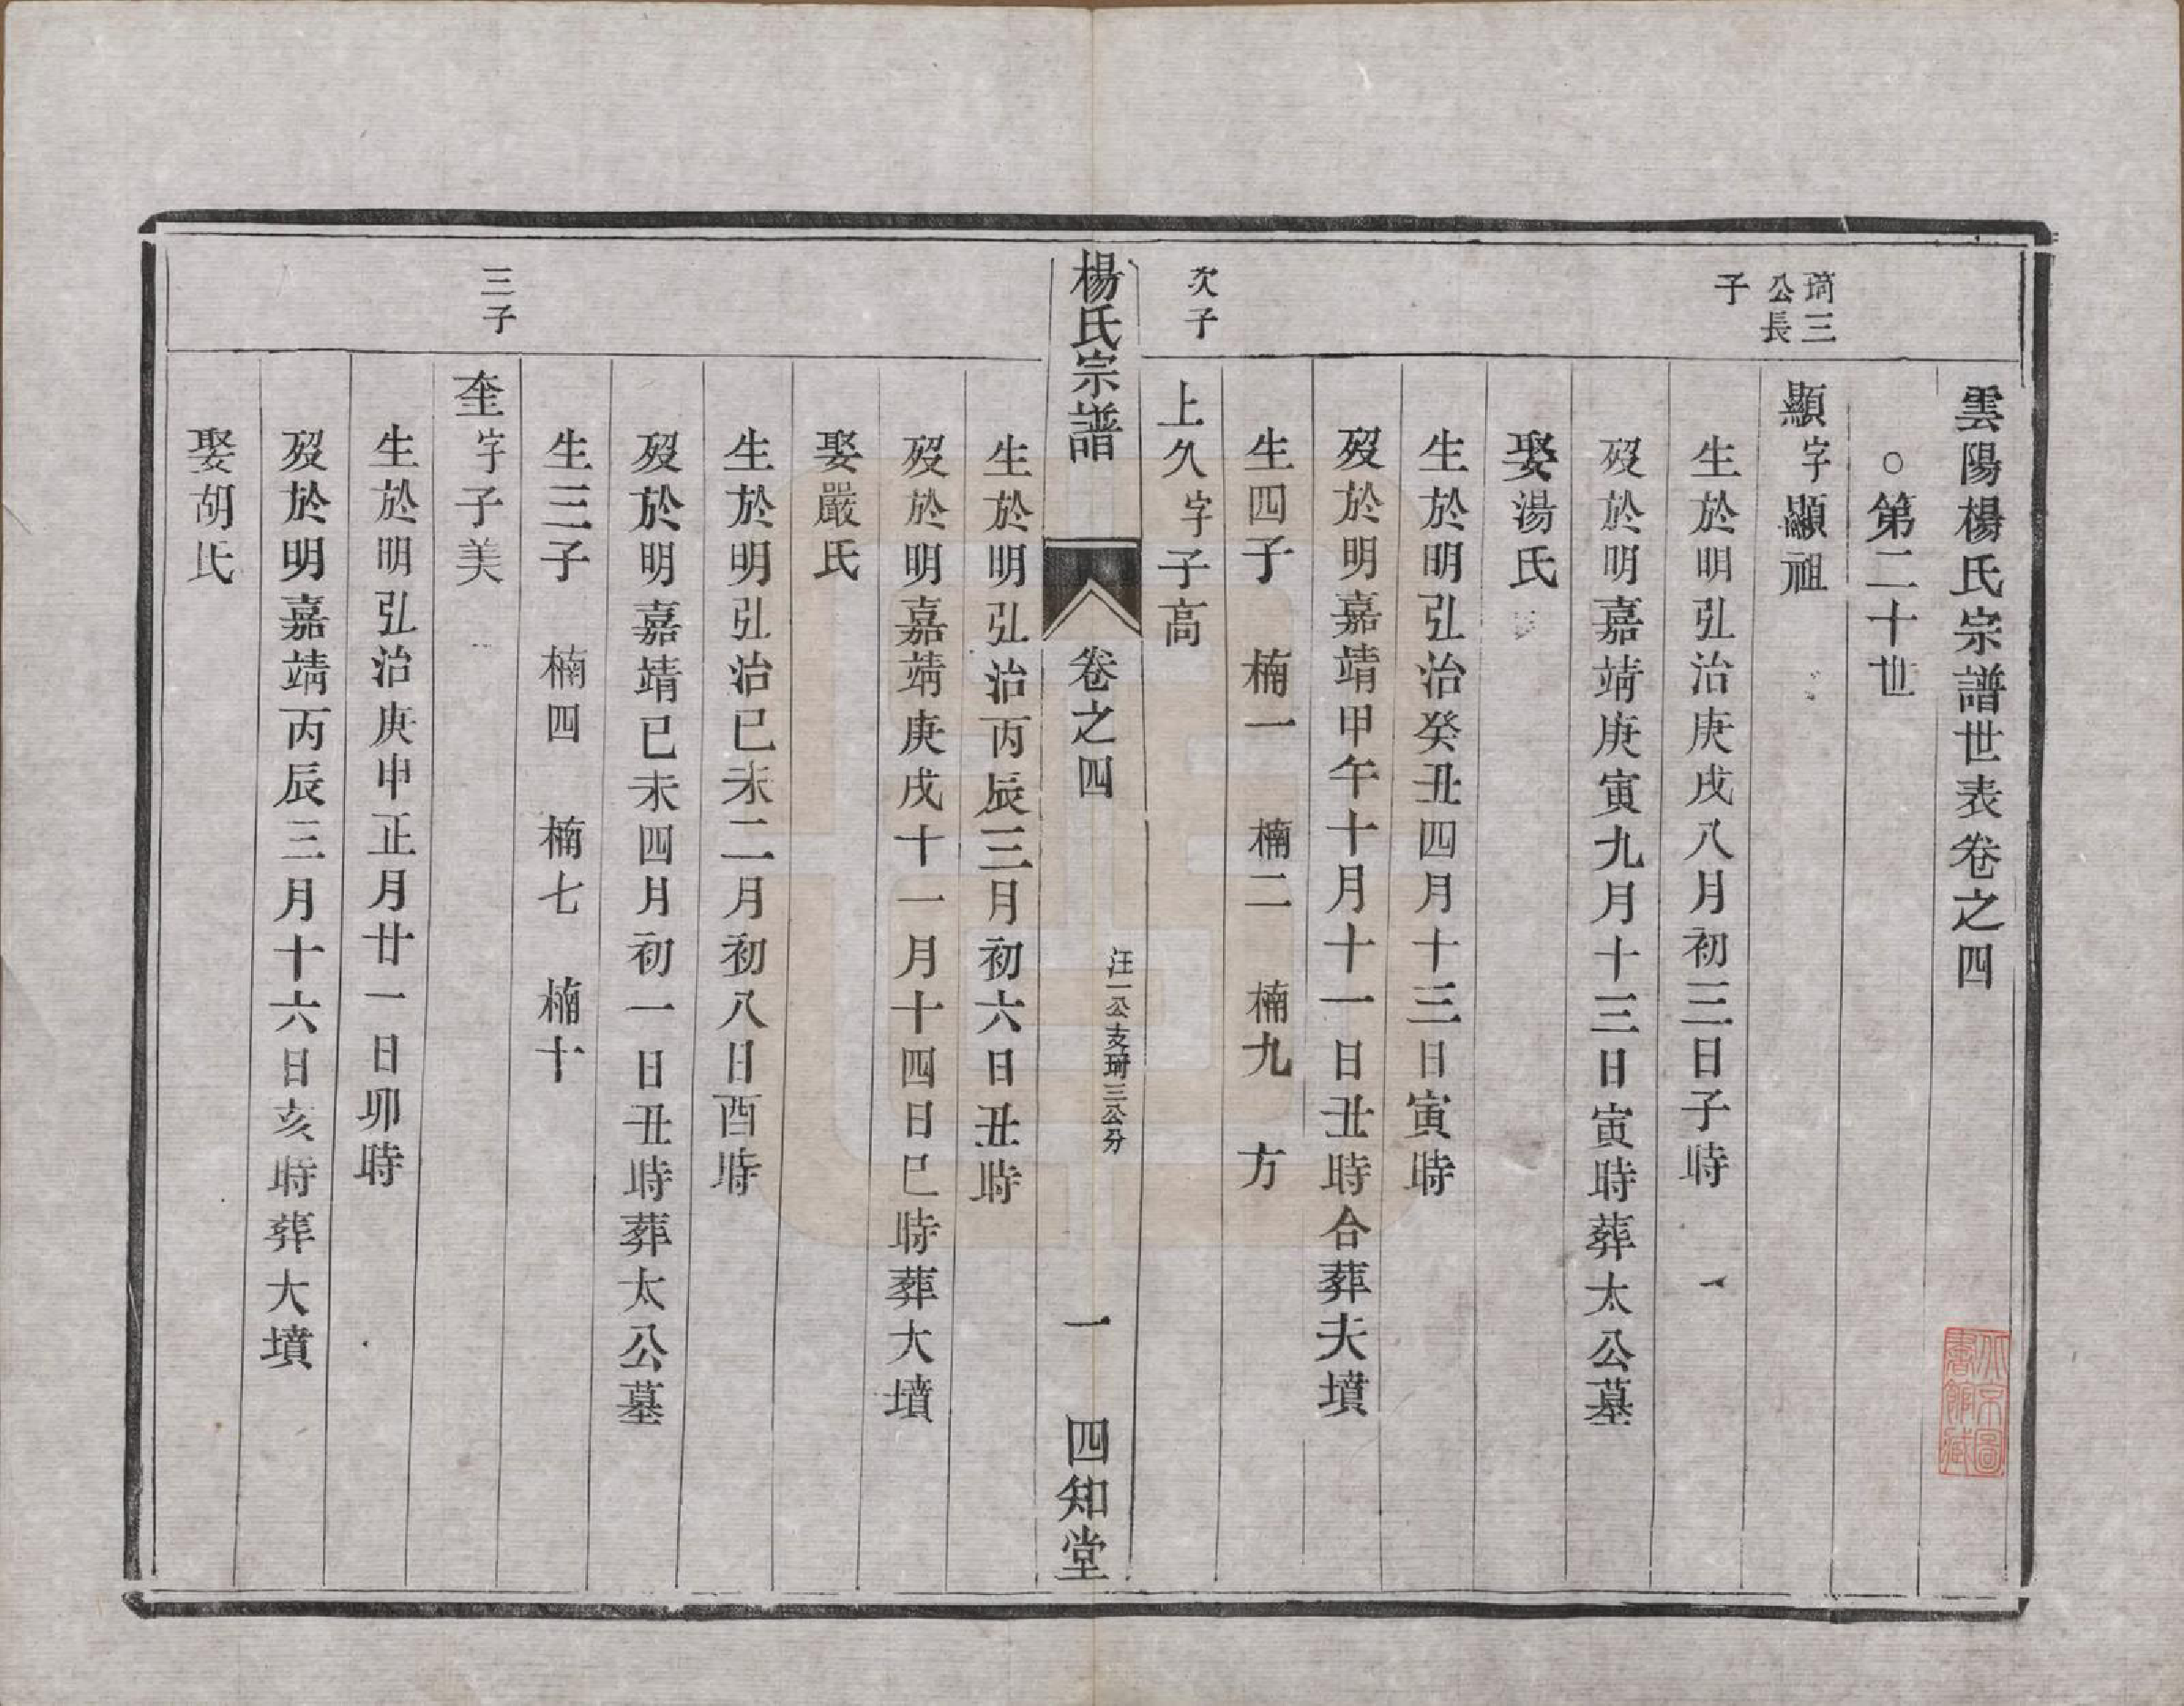 雲陽楊氏宗譜世表卷之四
○第二十世
琦三
公長
子
顯字顯祖
生於明弘治庚戌八月初三日子時
歿於明嘉靖庚寅九月十三日寅時葬太公墓
娶湯氏
生於明弘治癸丑四月十三日寅時
歿於明嘉靖甲午十月十一日丑時合葬夫墳
生四子 楠一 楠二 楠九 方
次子
上久字子高
楊氏宗譜 卷之四 汪一公支琦三公分 一 四知堂
生於明弘治丙辰三月初六日丑時
歿於明嘉靖庚戌十一月十四日巳時葬大墳
娶嚴氏
生於明弘治己未二月初八日酉時
歿於明嘉靖己未四月初一日丑時葬太公墓
生三子 楠四 楠七 楠十
三子
奎字子美
生於明弘治庚申正月廿一日卯時
歿於明嘉靖丙辰三月十六日亥時葬大墳
娶胡氏